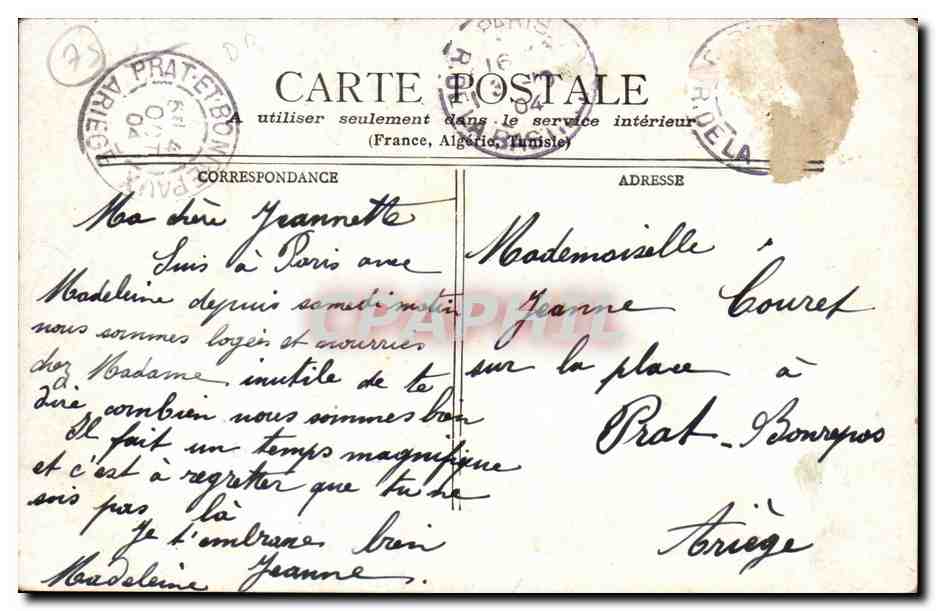 75
PRAT-ET-BONREPAUX
ARIEGE
4
OCT
04
PARIS
16
04
R. DE LA BASTILLE
R. DE LA
CARTE POSTALE
A utiliser seulement dans le service intérieur
(France, Algérie, Tunisie)
CORRESPONDANCE
Ma chère Jeannette
Suis à Paris avec
Madeleine depuis samedi matin
nous sommes logées et nourries
chez Madame inutile de te
dire combien nous sommes bien
Il fait un temps magnifique
et c'est à regretter que tu ne
sois pas là
Je t'embrasse bien
Madeleine Jeanne.
ADRESSE
Mademoiselle
Jeanne Couret
sur la place à
Prat-Bonrepos
Ariège
CPAPHIL